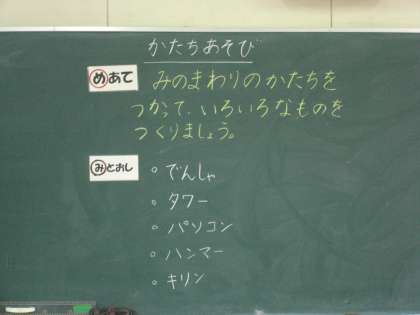 かたちあそび
めあて みのまわりのかたちを
つかって、いろいろなものを
つくりましょう。
みとおし
。でんしゃ
。タワー
。パソコン
。ハンマー
。キリン